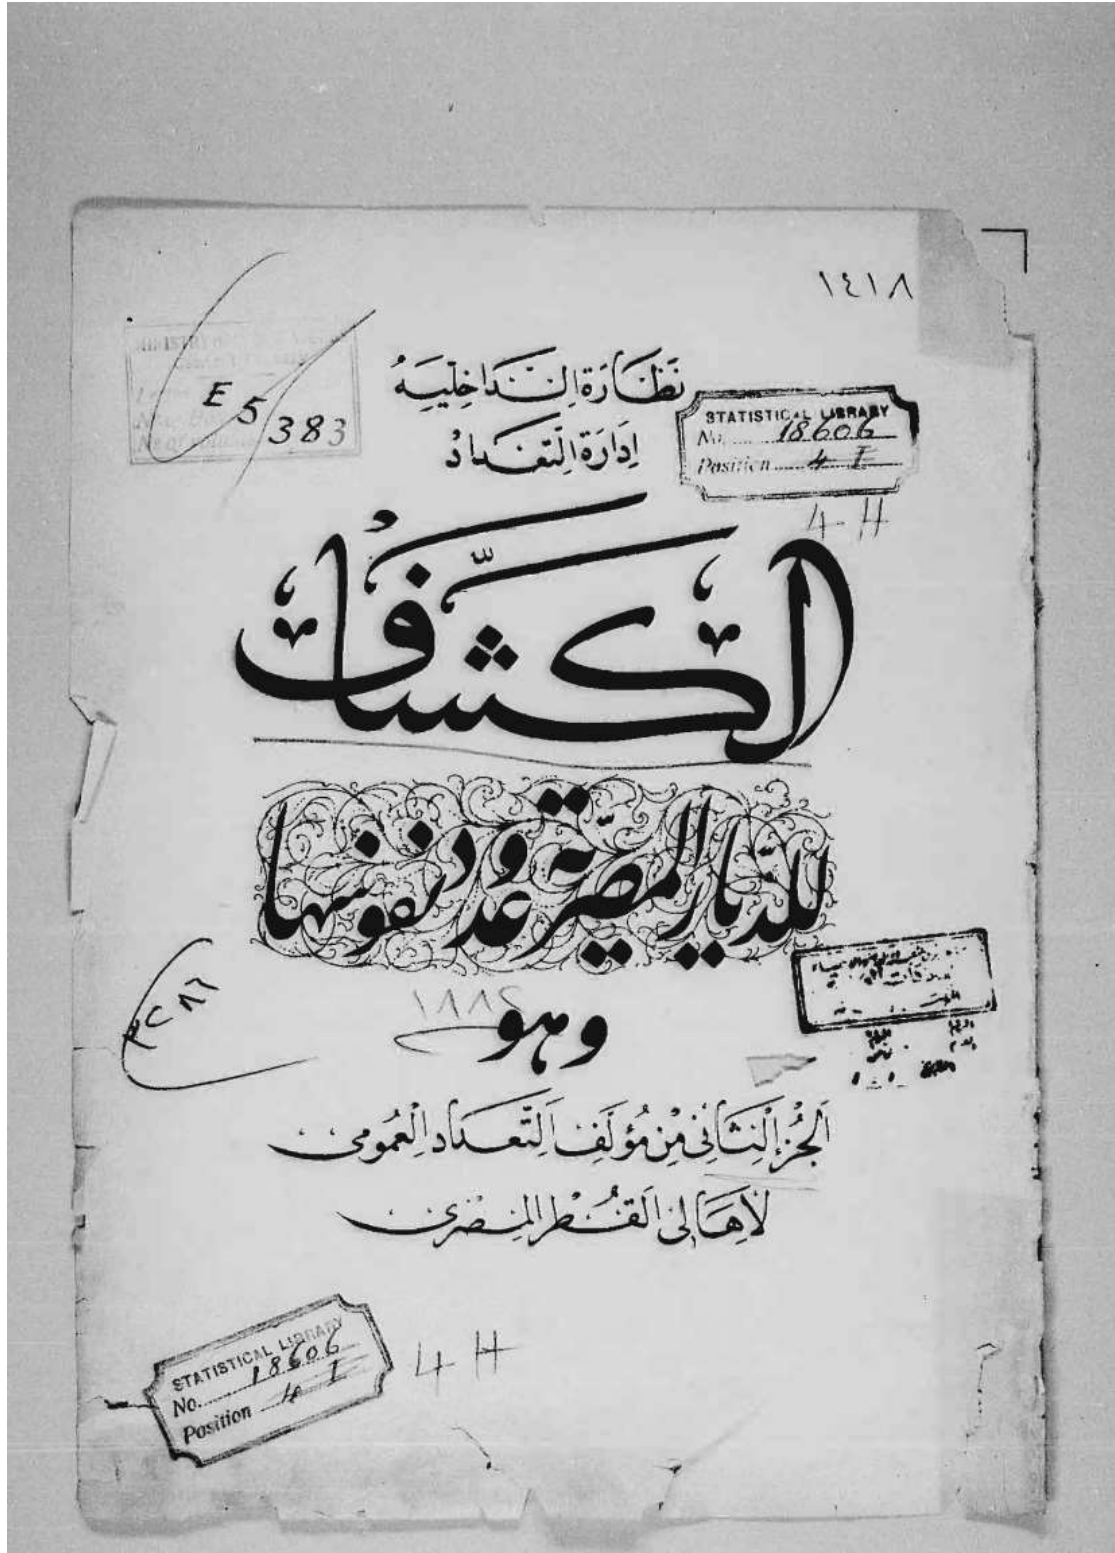 ١٤١٨
نَظَارَة الدَّاخِلِيَّهُ
إِدَارَة التَّعْدَادْ
E 5/383
STATISTICAL LIBRARY
No. 18606
Position 4 I
4 H
الكشّاف
للدّيار المصريّة وعدد نفوسها
١٨٨٢
وهو
الجُزء الثَّانِي مِنْ مُؤَلَّف التَّعْدَاد العُمُومِى
لأَهَالِى القُطْر المِصْرِى
STATISTICAL LIBRARY
No. 18606
Position 4 I
4 H